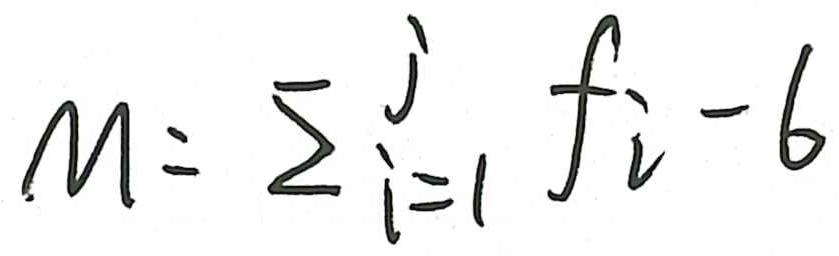 M = \sum_{i=1}^{j} f_i - 6